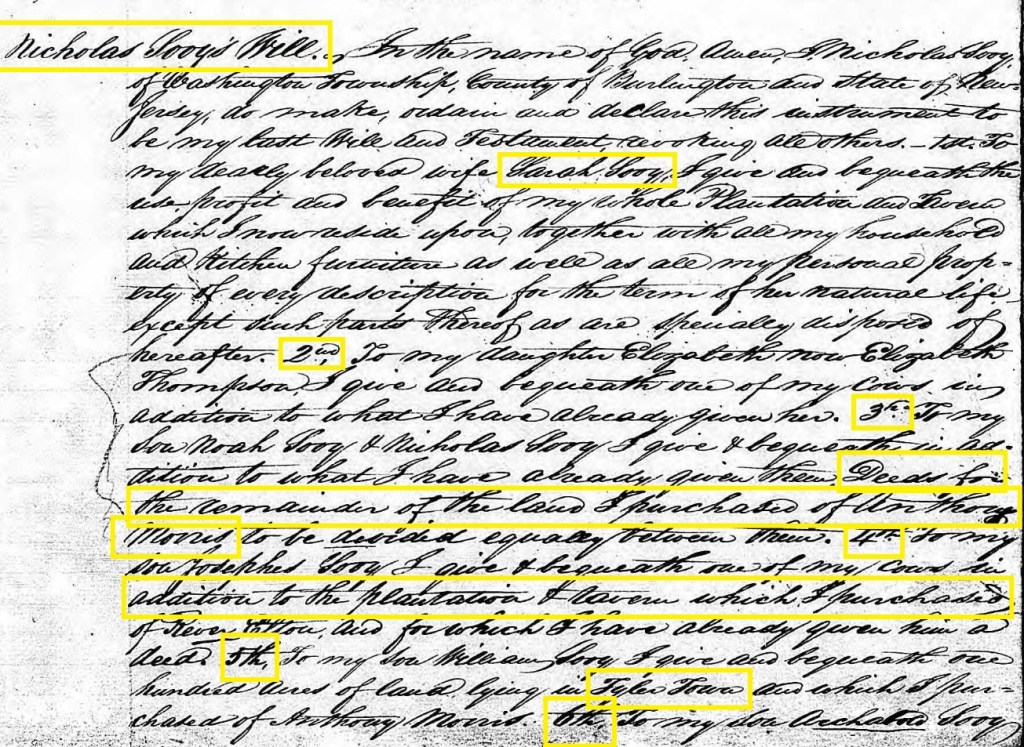 Nicholas Sooy's Will. In the name of God, Amen, I Nicholas Sooy,
of Washington Township, County of Burlington and State of New
Jersey, do make, ordain and declare this instrument to
be my last Will and Testament, revoking all others. - 1st. To
my dearly beloved wife Sarah Sooy, I give and bequeath the
use, profit and benefit of my whole Plantation and Tavern
which I now reside upon, together with all my household
and Kitchen furniture as well as all my personal prop-
erty of every description for the term of her natural life,
except such parts thereof as are specially disposed of
hereafter. 2nd, To my daughter Elizabeth now Elizabeth
Thompson, I give and bequeath one of my cows in
addition to what I have already given her. 3rd To my
son Noah Sooy & Nicholas Sooy I give & bequeath in ad-
dition to what I have already given them Deeds for
the remainder of the land I purchased of Anthony
Morris to be divided equally between them. 4th To my
son Josephes Sooy I give & bequeath one of my cows in
addition to the plantation & tavern which I purchased
of and for which I have already given him a
deed. 5th, To my son William Sooy I give and bequeath one
hundred acres of land lying in Tyler Town and which I pur-
chased of Anthony Morris. 6th To my son Archabold Sooy